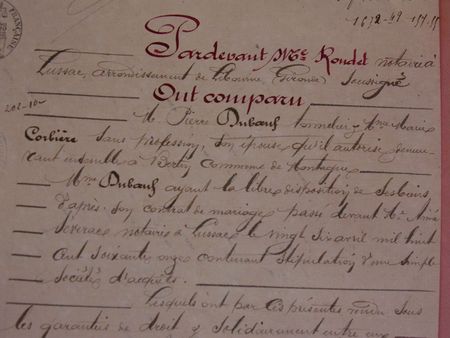 FRANÇAISE
Pardevant Me Roudet notaire à
Lussac, arrondissement de Libourne (Gironde) soussigné
Ont comparu
M. Pierre Dubœuf tonnelier & Mme Marie
Corbière sans profession, son épouse qu'il autorise demeu-
rant ensemble à Bertin commune de Montagne
Mme Dubœuf ayant la libre disposition de ses biens
d'après son contrat de mariage passé devant Me
notaire à Lussac le vingt six avril mil huit
cent soixante onze contenant stipulation d'une simple
société d'acquêts.
Lesquels ont par ces présentes vendu sous
les garanties de droit & solidairement entre eux